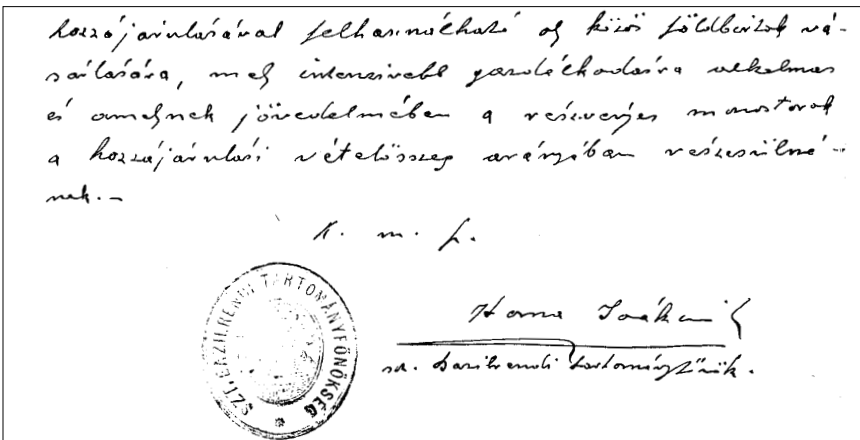 hozzájárulásával felhasználható oly közös földbirtok vá-
sárlására, mely intenzivebb gazdálkodásra alkalmas
és amelynek jövedelmében a részvényes monostorok
a hozzájárulási vételösszeg arányában részesülné-
nek.-
K. m. f.
SZT. BAZILRENDI TARTOMÁNYFŐNÖKSÉG
Joákim
szt. bazilrendi tartományfőnök.